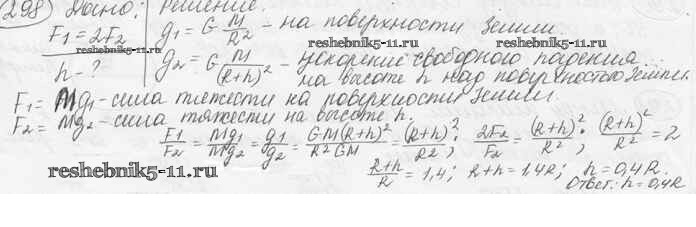 298 Дано: Решение.
F₁ = 2F₂
h - ?
g₁ = G M/R² - на поверхности Земли.
www.reshebnik5-11.ru www.reshebnik5-11.ru
g₂ = G M/(R+h)² - ускорение свободного падения
на высоте h над поверхностью Земли.
F₁ = Mg₁ - сила тяжести на поверхности Земли.
F₂ = Mg₂ - сила тяжести на высоте h.
F₁/F₂ = Mg₁/Mg₂ = g₁/g₂ = GM(R+h)²/R²GM = (R+h)²/R²; 2F₂/F₂ = (R+h)²/R²; (R+h)²/R² = 2
www.reshebnik5-11.ru
R+h/R = 1,4; R+h = 1,4R; h = 0,4R.
Ответ: h = 0,4R